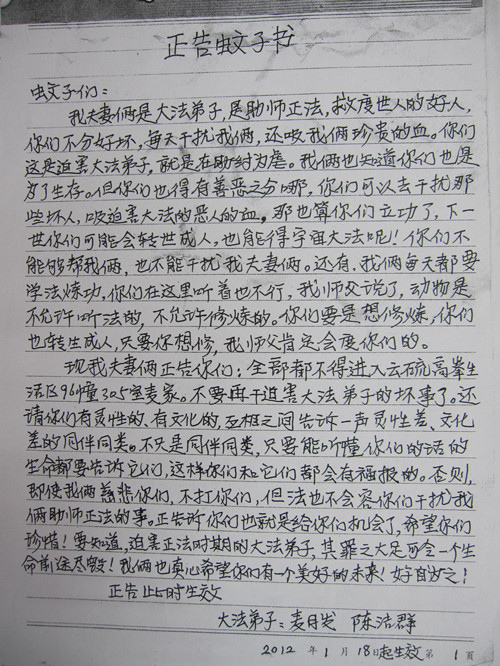 正告蚊子书
蚊子们：
我夫妻俩是大法弟子，是助师正法，救度世人的好人，
你们不分好坏，每天干扰我俩，还吸我俩珍贵的血。你们
这是迫害大法弟子，就是在助纣为虐。我俩也知道你们也是
为了生存。但你们也得有善恶之分哪，你们可以去干扰那
些坏人，吸迫害大法的恶人的血，那也算你们立功了，下一
世你们可能会转世成人，也能得宇宙大法呢！你们不
能够帮我俩，也不能干扰我夫妻俩。还有，我俩每天都要
学法炼功，你们在这里听着也不行，我师父说了，动物是
不允许听法的，不允许修炼的。你们要是想修炼，你们
也转生成人，只要你想修，我师父肯定会度你们的。
现我夫妻俩正告你们：全部都不得进入云硫高峯生
活区96幢305室麦家。不要再干迫害大法弟子的坏事了。还
请你们有灵性的、有文化的，互相之间告诉一声灵性差、文化
差的同伴同类。不只是同伴同类，只要能听懂你们的话的
生命都要告诉它们，这样你们和它们都会有福报的。否则，
即使我俩慈悲你们，不打你们，但法也不会容你们干扰我
俩助师正法的事。正告诉你们也就是给你们机会了，希望你们
珍惜！要知道，迫害正法时期的大法弟子，其罪之大足可令一个生
命前途尽毁！我俩也真心希望你们有一个美好的未来！好自为之！
正告此5时生效
大法弟子：麦日发 陈洁群
2012年1月18日起生效第1頁